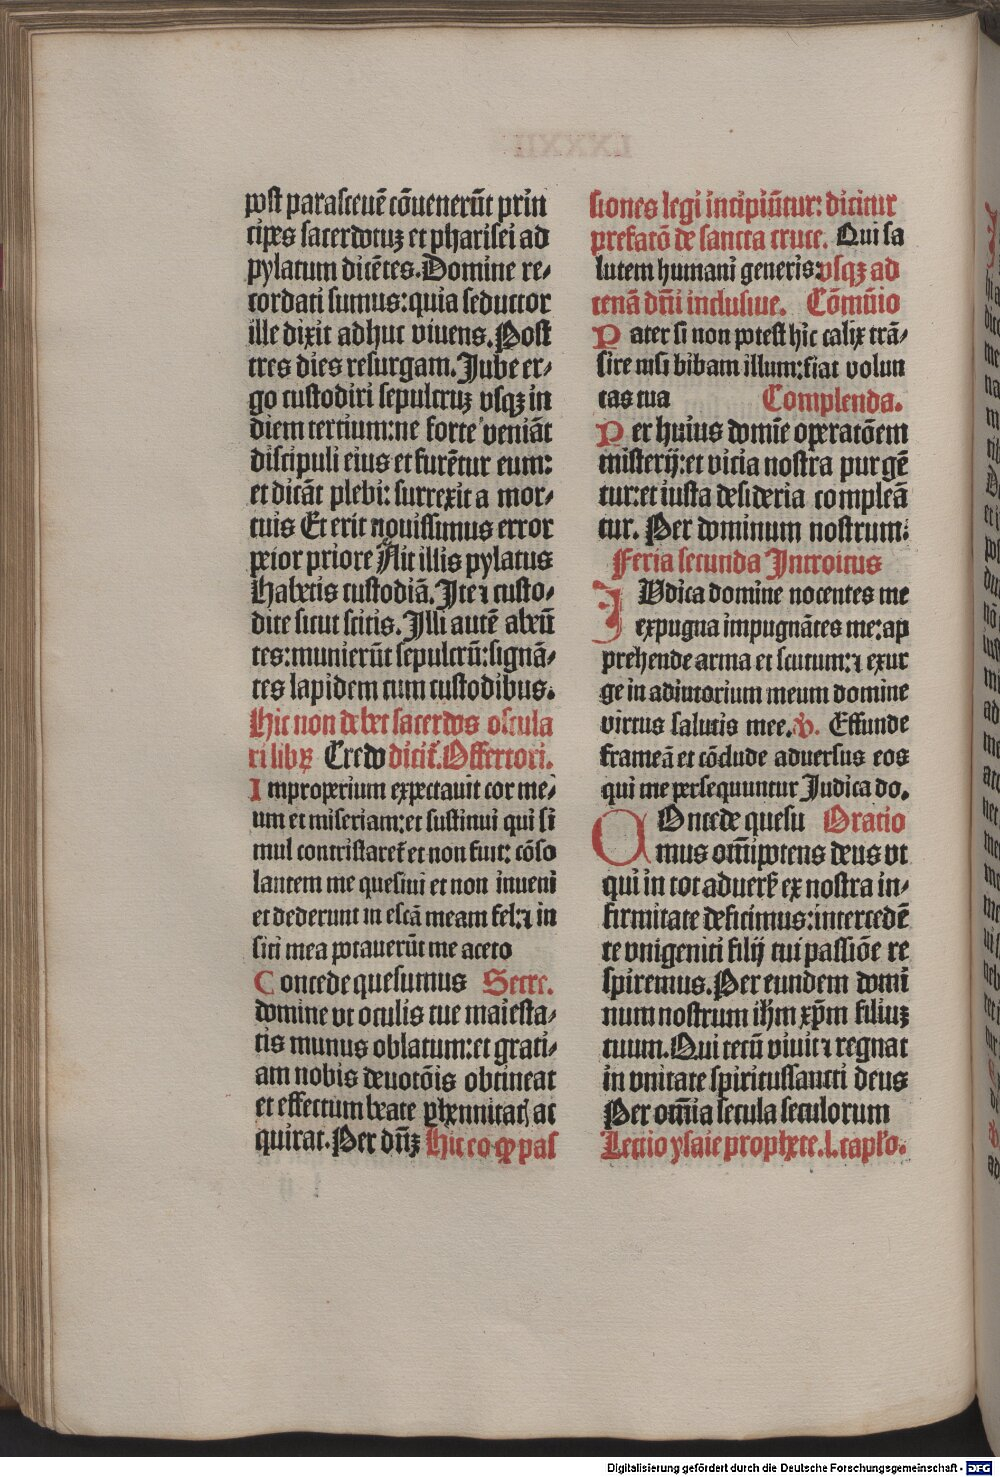 post parasceuē cōuenerūt prin
cipes sacerdotuꝫ et pharisei ad
pylatum dicētes. Domine re⸗
cordati sumus: quia seductor
ille dixit adhuc viuens. Post
tres dies resurgam. Jube er⸗
go custodiri sepulcruꝫ vsqꝫ in
diem tertium: ne forte veniāt
discipuli eius et furētur eum:
et dicāt plebi: surrexit a mor⸗
tuis Et erit nouissimus error
peior priore Ait illis pylatus
Habetis custodiā. Ite ⁊ custo⸗
dite sicut scitis. Illi autē abeū
tes: munierūt sepulcrū: signā⸗
tes lapidem cum custodibus.
Hic non debet sacerdos oscula
ri libꝝ Credo dicit̄. Offertori.
Improperium expectauit cor me⸗
um et miseriam: et sustinui qui si
mul contristaret̄ et non fuit: cōso
lantem me quesiui et non inueni
et dederunt in escā meam fel: ⁊ in
siti mea potauerūt me aceto
Concede quesumus Secre.
domine vt oculis tue maiesta⸗
tis munus oblatum: et grati⸗
am nobis deuotōis obtineat
et effectum beate ꝑhennitatꝭ ac
quirat. Per dn̄ꝫ Hic eo ꝙ pas
siones legi incipiūtur: dicitur
prefatō de sancta cruce. Qui sa
lutem humani generis: vsqꝫ ad
cenā dn̄i inclusiue. Cōmūio
Pater si non potest hic calix trā⸗
sire nisi bibam illum: fiat volun
tas tua Complenda.
Per huius domīe operatōem
misterij: et vicia nostra purgē
tur: et iusta desideria compleā
tur. Per dominum nostrum:
Feria secunda Introitus
IVdica domine nocentes me
expugna impugnātes me: ap
prehende arma et scutum: ⁊ exur
ge in adiutorium meum domine
virtus salutis mee. ꝟ. Effunde
frameā et cōclude aduersus eos
qui me persequuntur Judica do.
COncede quesu Oratio
mus om̄ipotens deus vt
qui in tot aduers̄ ex nostra in⸗
firmitate deficimus: intercedē
te vnigeniti filij tui passiōe re
spiremus. Per eundem domi
num nostrum ihm̄ xp̄m filiuꝫ
tuum. Qui tecū viuit ⁊ regnat
in vnitate spiritussancti deus
Per om̄ia secula seculorum
Lectio ysaie prophete. l. caplo.
Digitalisierung gefördert durch die Deutsche Forschungsgemeinschaft - DFG